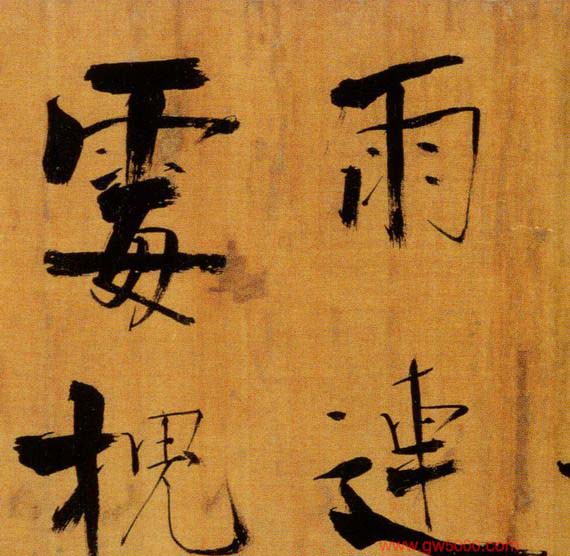 雨連
霉槐
www.gw5000.com